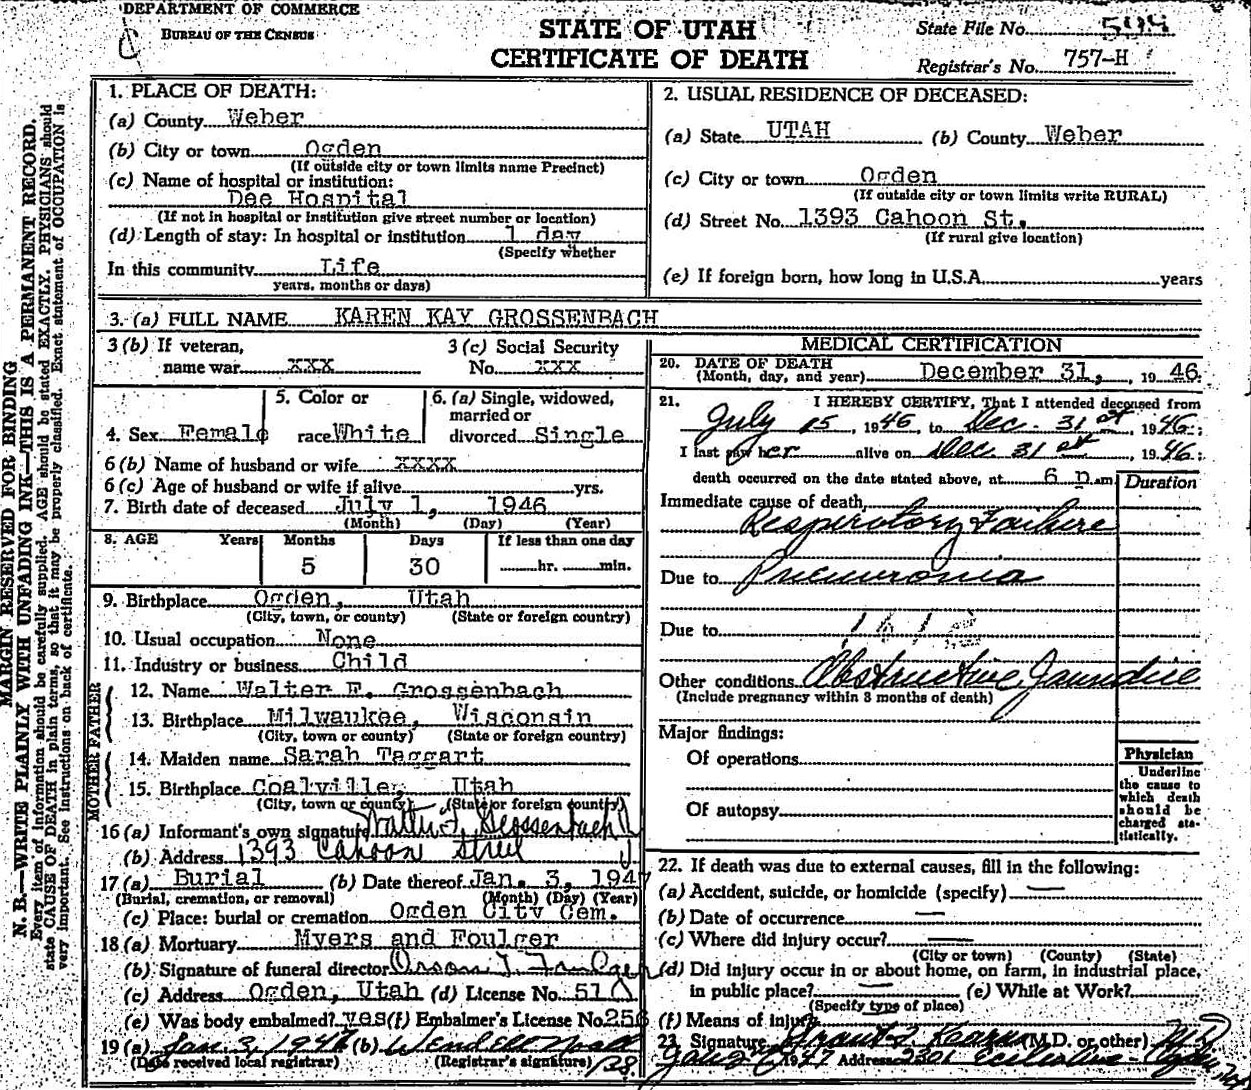 DEPARTMENT OF COMMERCE
BUREAU OF THE CENSUS
STATE OF UTAH
CERTIFICATE OF DEATH
State File No.
Registrar's No. 757-H
MARGIN RESERVED FOR BINDING
N. B.—WRITE PLAINLY WITH UNFADING INK—THIS IS A PERMANENT RECORD.
Every item of information should be carefully supplied. AGE should be stated EXACTLY. PHYSICIANS should
state CAUSE OF DEATH in plain terms, so that it may be properly classified. Exact statement of OCCUPATION is
very important. See instructions on back of certificate.
1. PLACE OF DEATH:
(a) County Weber
(b) City or town Ogden
(If outside city or town limits name Precinct)
(c) Name of hospital or institution:
Dee Hospital
(If not in hospital or institution give street number or location)
(d) Length of stay: In hospital or institution 1 day
(Specify whether
In this community Life
years, months or days)
2. USUAL RESIDENCE OF DECEASED:
(a) State UTAH (b) County Weber
(c) City or town Ogden
(If outside city or town limits write RURAL)
(d) Street No. 1393 Cahoon St.
(If rural give location)
(e) If foreign born, how long in U.S.A. years
3. (a) FULL NAME KAREN KAY GROSSENBACH
3 (b) If veteran,
name war XXX
3 (c) Social Security
No. XXX
4. Sex Female
5. Color or
race White
6. (a) Single, widowed,
married or
divorced Single
6 (b) Name of husband or wife XXXX
6 (c) Age of husband or wife if alive yrs.
7. Birth date of deceased July 1, 1946
(Month) (Day) (Year)
8. AGE Years Months Days If less than one day
5 30 hr. min.
9. Birthplace Ogden, Utah
(City, town, or county) (State or foreign country)
10. Usual occupation None
11. Industry or business Child
FATHER
12. Name Walter F. Grossenbach
13. Birthplace Milwaukee, Wisconsin
(City, town or county) (State or foreign country)
MOTHER
14. Maiden name Sarah Taggart
15. Birthplace Coalville, Utah
(City, town or county) (State or foreign country)
16 (a) Informant's own signature Walter F. Grossenbach
(b) Address 1393 Cahoon Street
17 (a) Burial (b) Date thereof Jan. 3, 1947
(Burial, cremation, or removal) (Month) (Day) (Year)
(c) Place: burial or cremation Ogden City Cem.
18 (a) Mortuary Myers and Foulger
(b) Signature of funeral director
(c) Address Ogden, Utah (d) License No. 510
(e) Was body embalmed? yes (f) Embalmer's License No. 256
19 (a) Jan. 3, 1947 (b) Wendell
(Date received local registrar) (Registrar's signature)
MEDICAL CERTIFICATION
20. DATE OF DEATH
(Month, day, and year) December 31, 1946
21. I HEREBY CERTIFY, That I attended deceased from
July 15, 1946, to Dec. 31 st, 1946;
I last saw her alive on Dec. 31 st, 1946;
death occurred on the date stated above, at 6 p.m.
Duration
Immediate cause of death
Respiratory Failure
Due to Pneumonia
Due to
Other conditions Obstructive Jaundice
(Include pregnancy within 3 months of death)
Major findings:
Of operations
Of autopsy
Physician
Underline
the cause to
which death
should be
charged sta-
tistically.
22. If death was due to external causes, fill in the following:
(a) Accident, suicide, or homicide (specify) —
(b) Date of occurrence —
(c) Where did injury occur? —
(City or town) (County) (State)
(d) Did injury occur in or about home, on farm, in industrial place,
in public place? — (e) While at Work?
(Specify type of place)
(f) Means of injury
23. Signature (M.D. or other) MD
Jan 2 1947 Address